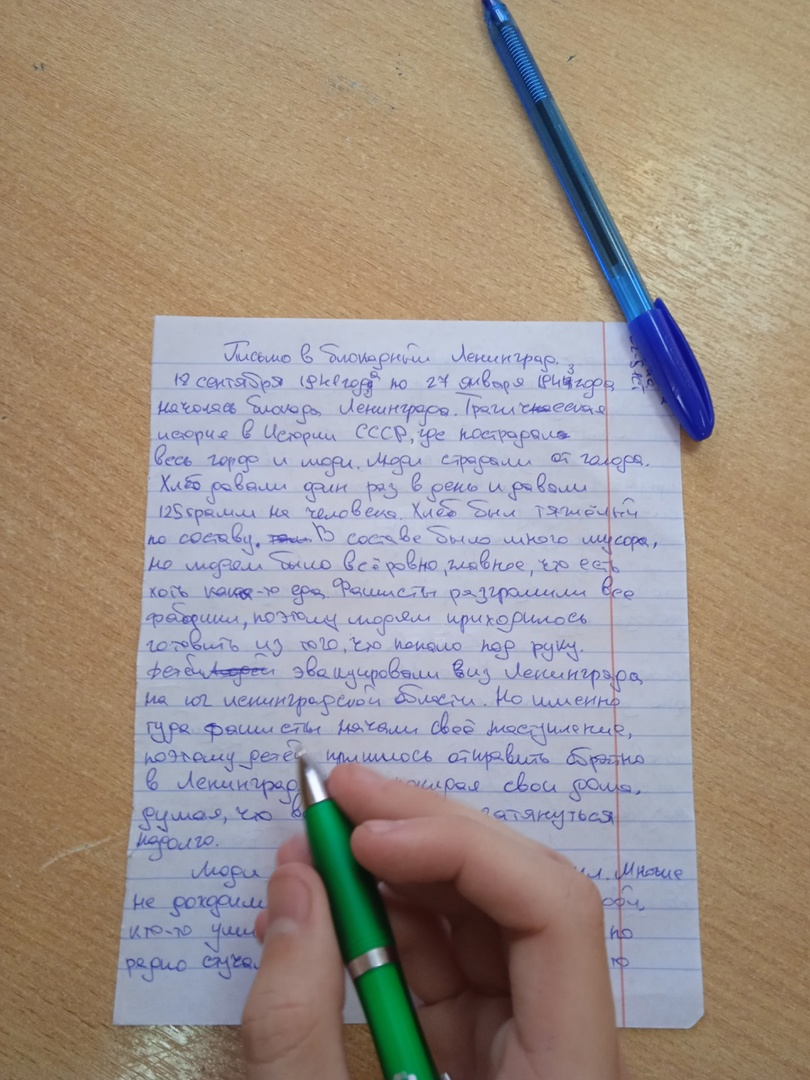 Письмо в блокадный Ленинград.
18 сентября года по 27 января года
началась блокада Ленинграда. Трагическая
история в Истории СССР, где пострадало
весь городо и люди. Люди страдали от голода.
Хлеб давали один раз в день и давали
125 грамм на человека. Хлеб был тяжёлый
по составу. В составе было много мусора,
но людям было всё ровно, главное, что есть
хоть какая-то еда. Фашисты разгромили все
фабрики, поэтому людям приходилось
готовить из того, что попало под руку.
Детей эвакуировали из Ленинграда
на юг ленинградской области. Но именно
туда фашисты начали своё наступление,
поэтому детей пришлось отправить обратно
в Ленинград свои дома,
думая, что затянуться
надолго.
Люди Многие
не доходили
кто-то по
радио